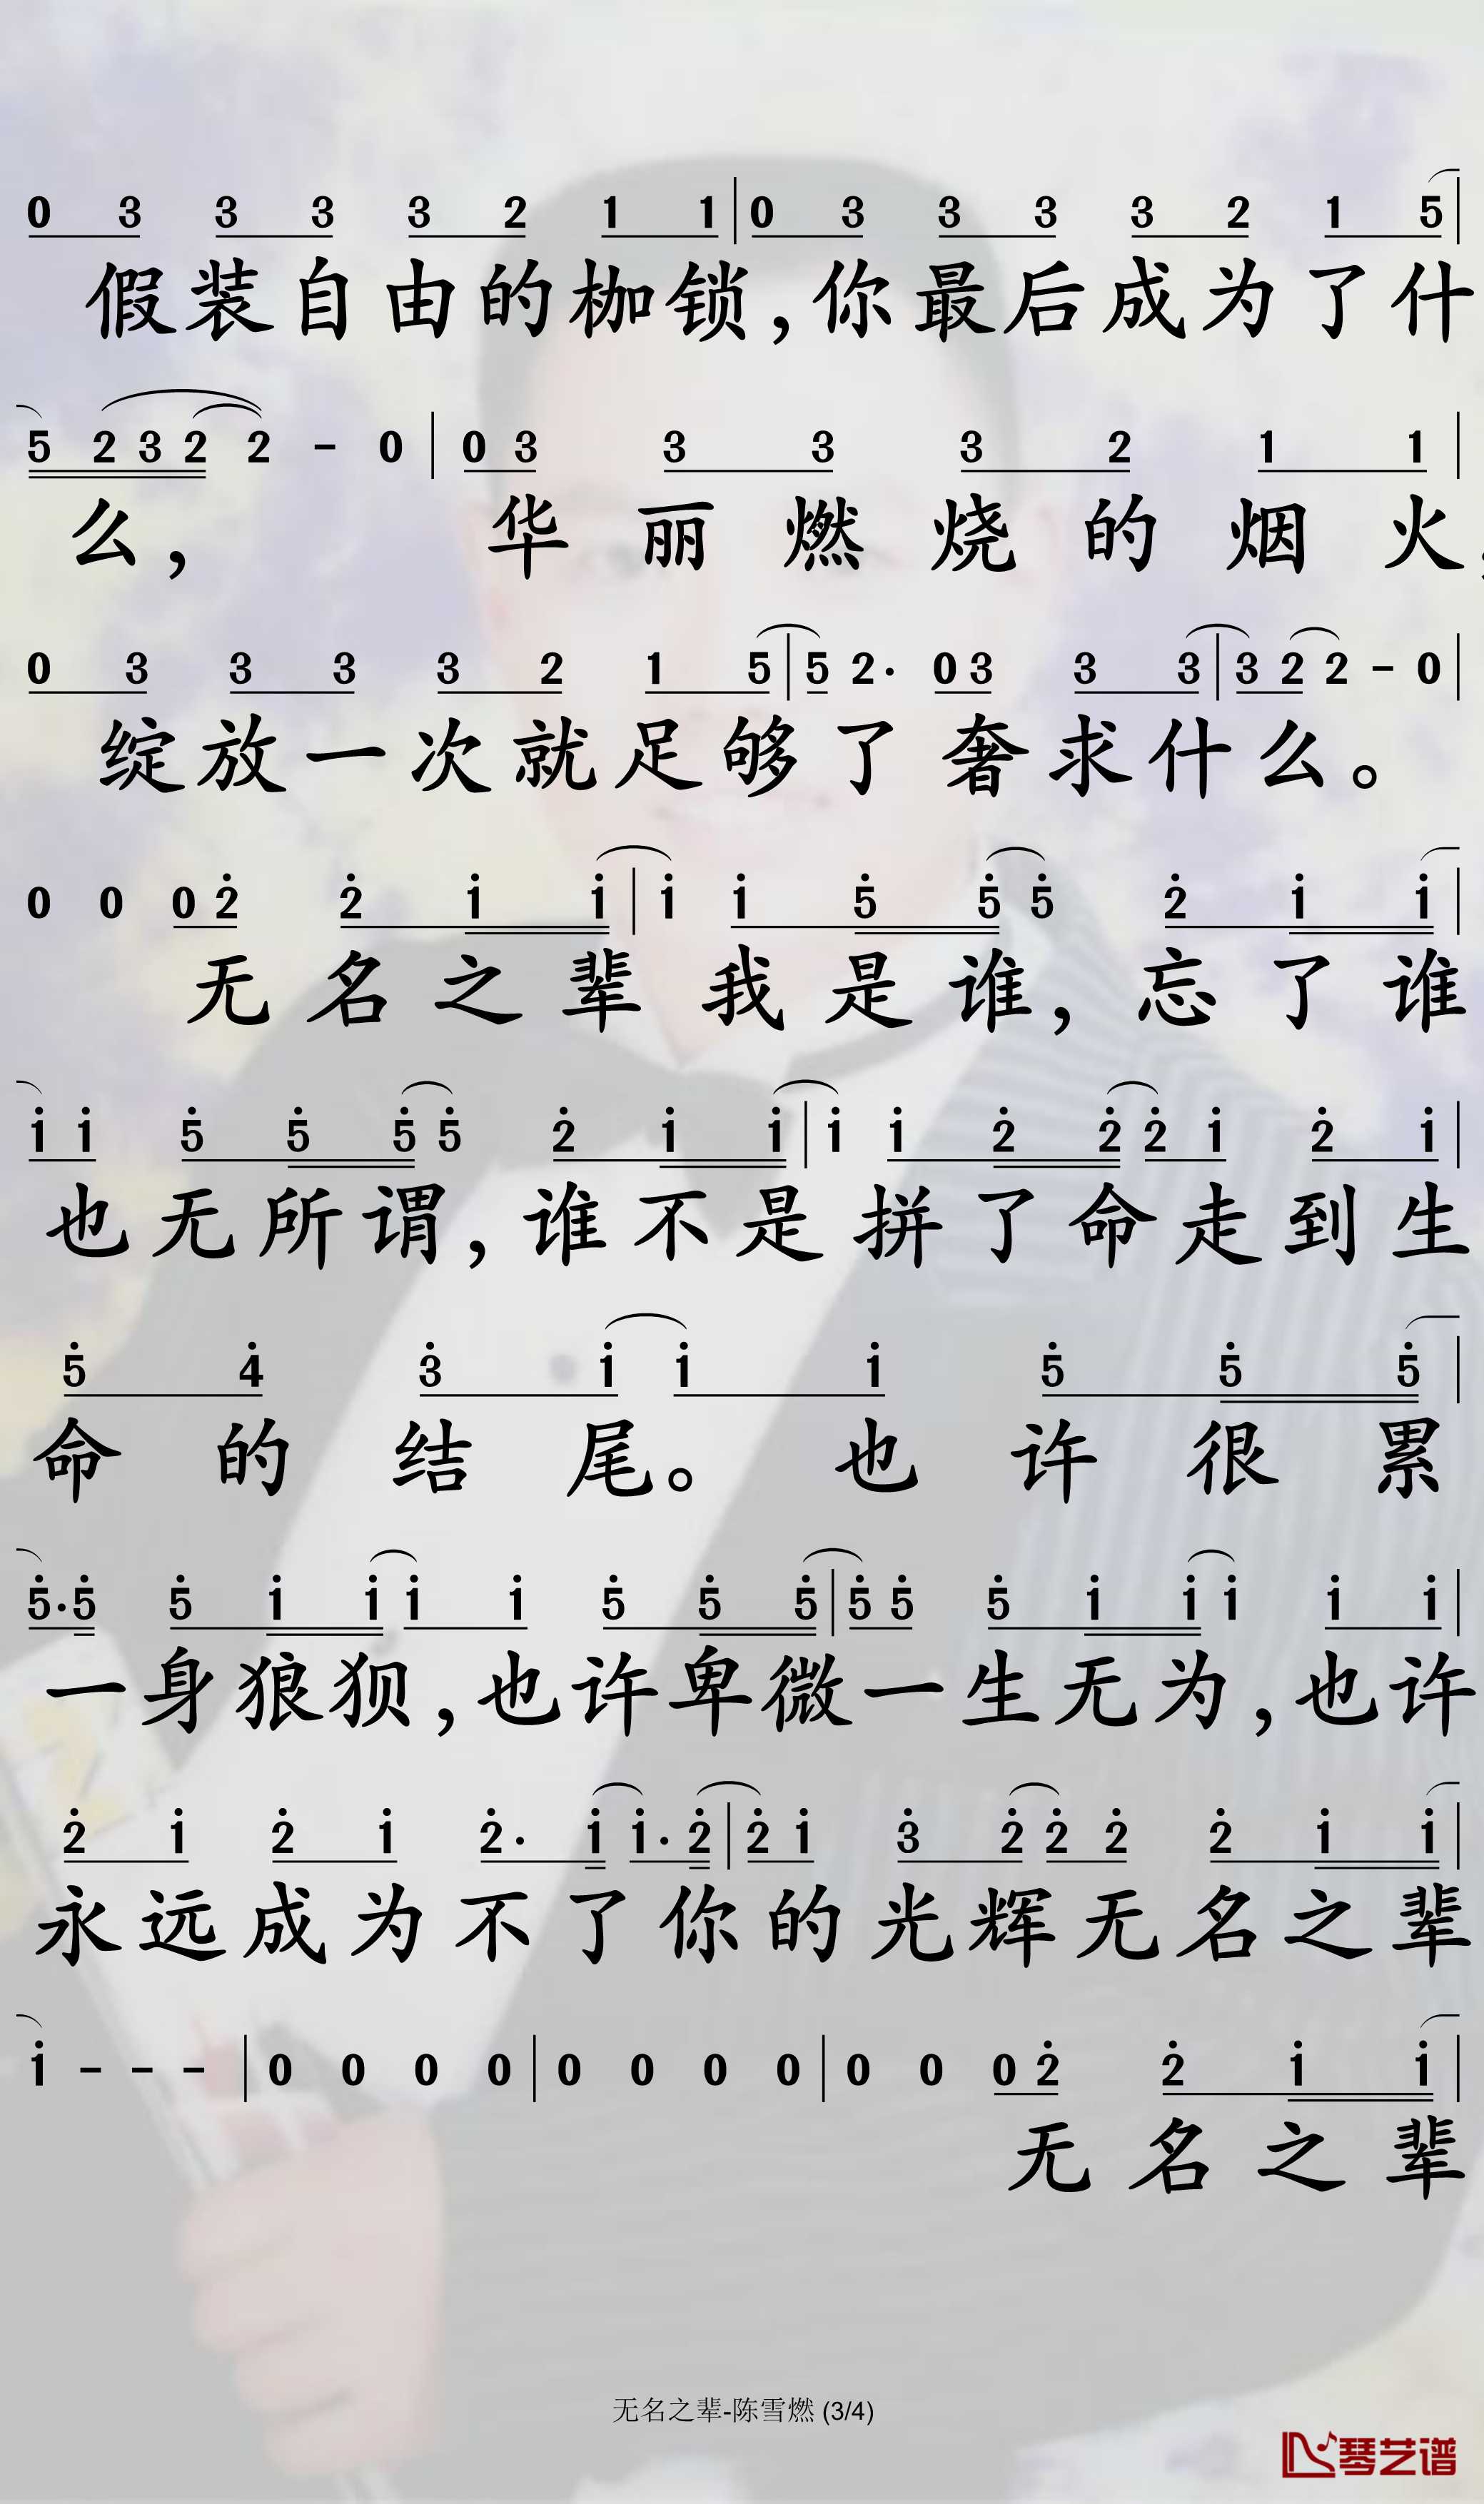 0 3 3 3 3 2 1 1 | 0 3 3 3 3 2 1 5 |
假装自由的枷锁,你最后成为了什
5 2 3 2 2 - 0 | 0 3 3 3 3 2 1 1 |
么, 华丽燃烧的烟火,
0 3 3 3 3 2 1 5 | 5 2· 0 3 3 3 | 3 2 2 - 0 |
绽放一次就足够了奢求什么。
0 0 0 2̇ 2̇ 1̇ 1̇ | 1̇ 1̇ 5̇ 5̇ 5̇ 2̇ 1̇ 1̇ |
无名之辈我是谁,忘了谁
1̇ 1̇ 5̇ 5̇ 5̇ 5̇ 2̇ 1̇ 1̇ | 1̇ 1̇ 2̇ 2̇ 2̇ 1̇ 2̇ 1̇ |
也无所谓,谁不是拼了命走到生
5̇ 4̇ 3̇ 1̇ 1̇ 1̇ 5̇ 5̇ 5̇ |
命的结尾。也许很累
5̇· 5̇ 5̇ 1̇ 1̇ 1̇ 1̇ 5̇ 5̇ 5̇ | 5̇ 5̇ 5̇ 1̇ 1̇ 1̇ 1̇ 1̇ |
一身狼狈,也许卑微一生无为,也许
2̇ 1̇ 2̇ 1̇ 2̇· 1̇ 1̇· 2̇ | 2̇ 1̇ 3̇ 2̇ 2̇ 2̇ 2̇ 1̇ 1̇ |
永远成为不了你的光辉无名之辈
1̇ - - - | 0 0 0 0 | 0 0 0 0 | 0 0 0 2̇ 2̇ 1̇ 1̇ |
无名之辈
无名之辈-陈雪燃 (3/4)
琴艺谱